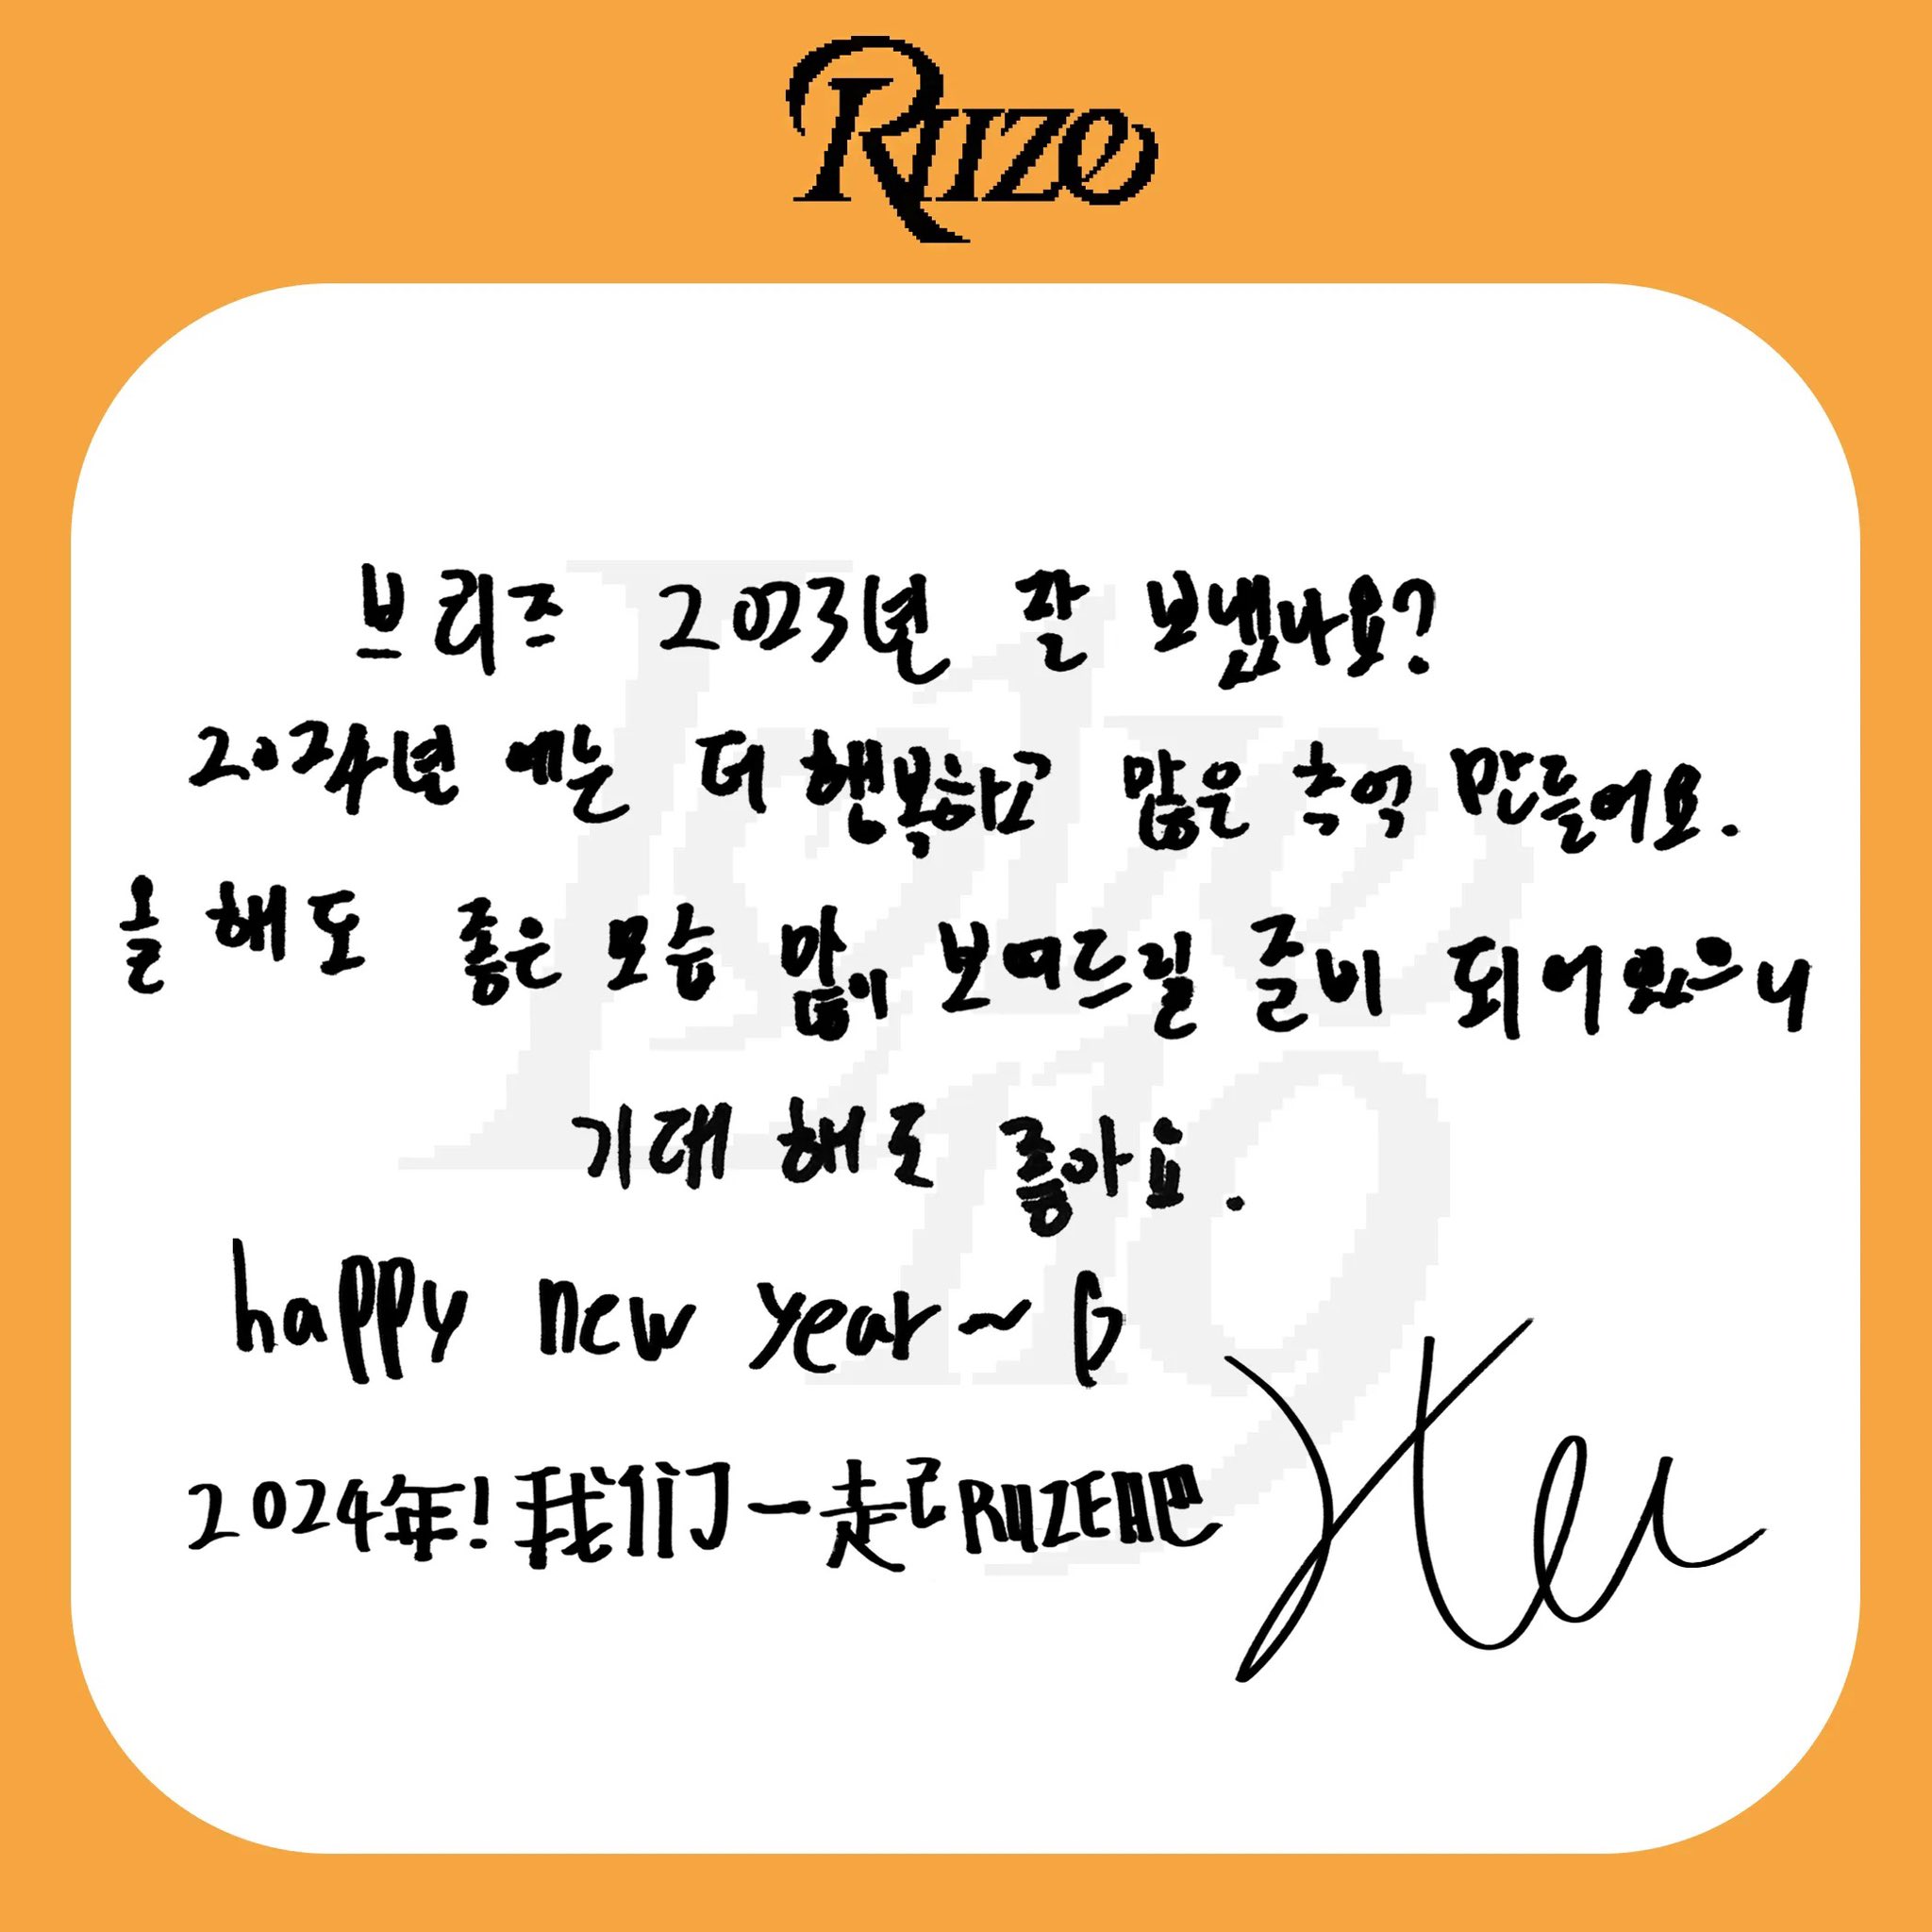 RIIZE
브리즈 2023년 잘 보냈나요?
2024년에는 더 행복하고 많은 추억 만들어요.
올해도 좋은 모습 많이 보여드릴 준비 되어있으니
기대 해도 좋아요.
happy new year~
2024年!我们一起RIIZE吧